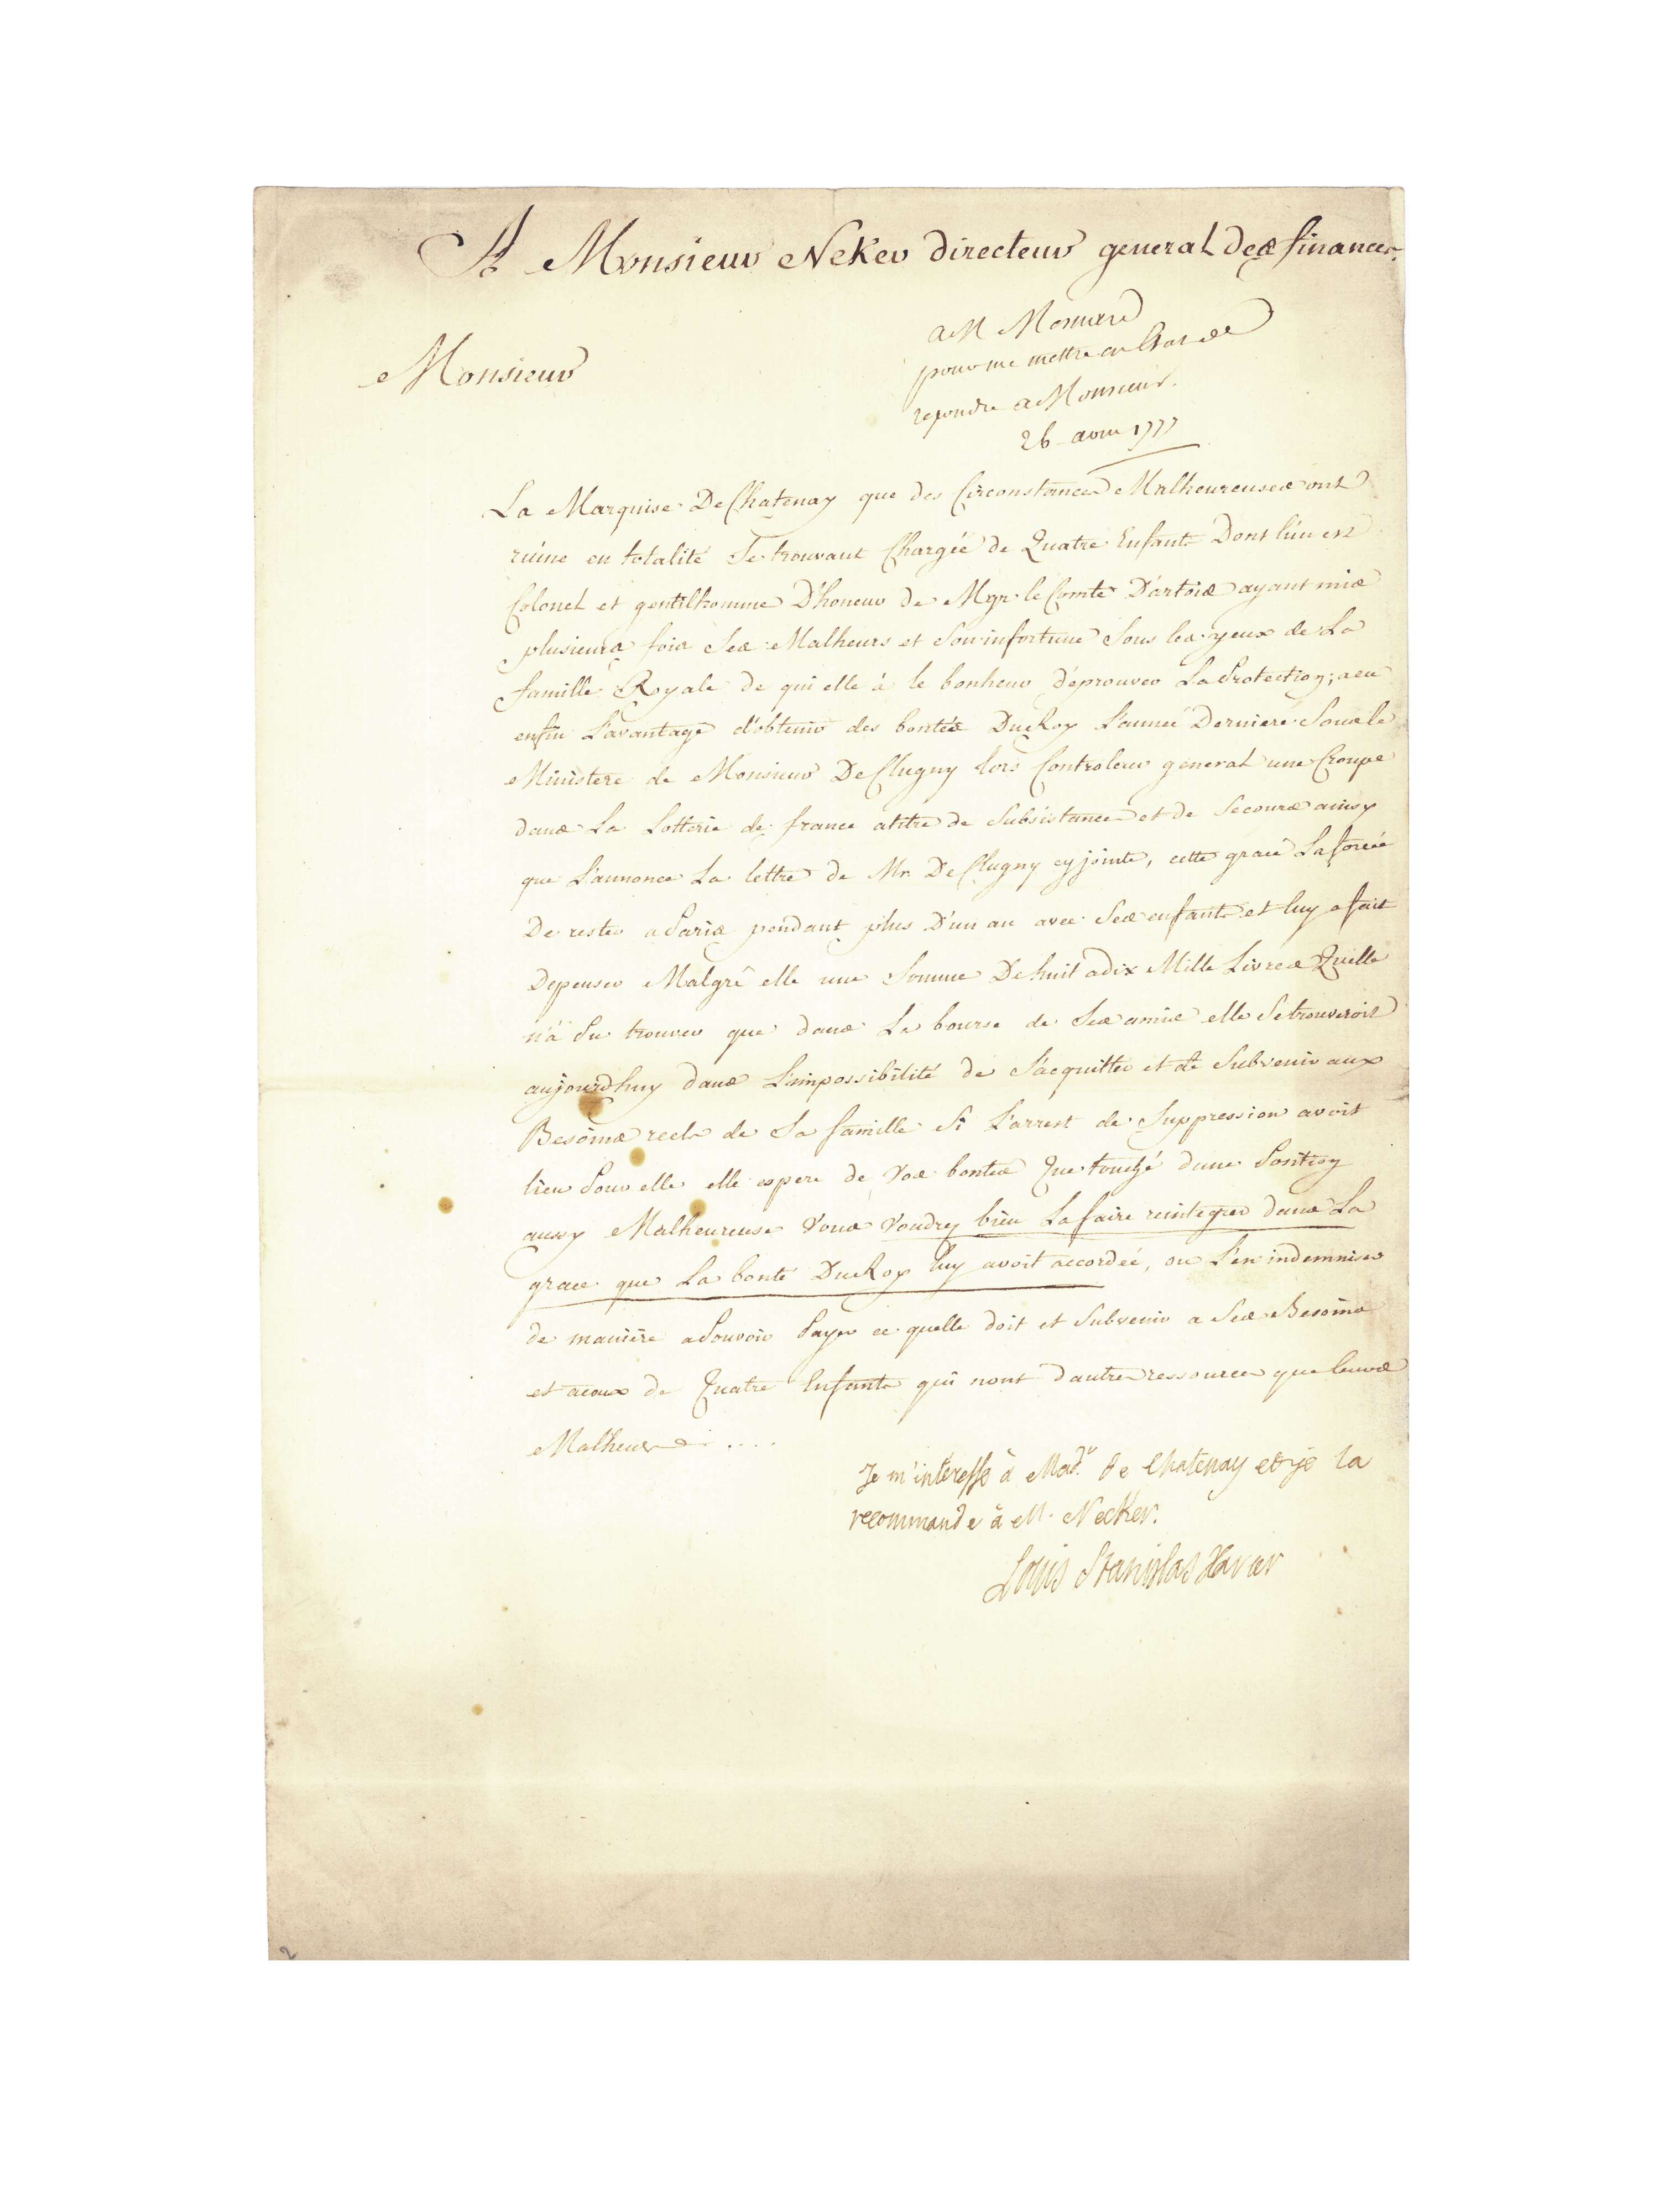 A Monsieur Neker directeur general des finances.
a M Mesnard
pour me mettre en Etat de
repondre a Monsieur.
26 avril 1777
Monsieur
La Marquise De Chatenay que des Circonstances Malheureuses ont
ruiné en totalité Se trouvant Chargée de Quatre Enfants Dont l'un est
Colonel et gentilhomme D'honeur de Mgr. le Comte D'artois ayant mis
plusieurs fois Ses Malheurs et Son infortune Sous les yeux de La
famille Royale de qui elle à le bonheur d'éprouver La Protection; a eu
enfin L'avantage d'obtenir des bontés Du Roy L'année Derniere Sous le
Ministere de Monsieur De Clugny lors Controleur general une Croupe
dans La Lotterie de france a titre de Subsistance et de Secours ainsy
que L'annonce La lettre de Mr. De Clugny cy jointe, cette grace La forcée
De rester a Paris pendant plus D'un an avec Ses enfants et luy a fait
Depenser Malgré elle une Somme De huit a dix Mille Livres Quelle
n'à Pu trouver que dans La bourse de Ses amis elle Se trouveroit
aujourdhuy dans L'impossibilité de S'acquitter et de Subvenir aux
Besoins reels de Sa famille Si L'arrest de Suppression avoit
lieu Pour elle elle espere de Vos bontés Que touché dune Position
aussy Malheureuse Vous Voudrez bien La faire reintegrer dans La
grace que La bonté Du Roy luy avoit accordée, ou L'en indemniser
de manière a Pouvoir Payer ce quelle doit et Subvenir a Ses Besoins
et aceux de Quatre Enfants qui nont d'autres ressources que leurs
Malheurs ....
Je m'interesse à Mad.e de Chatenay et je la
recommande à M. Necker.
Louis Stanislas Xavier
2